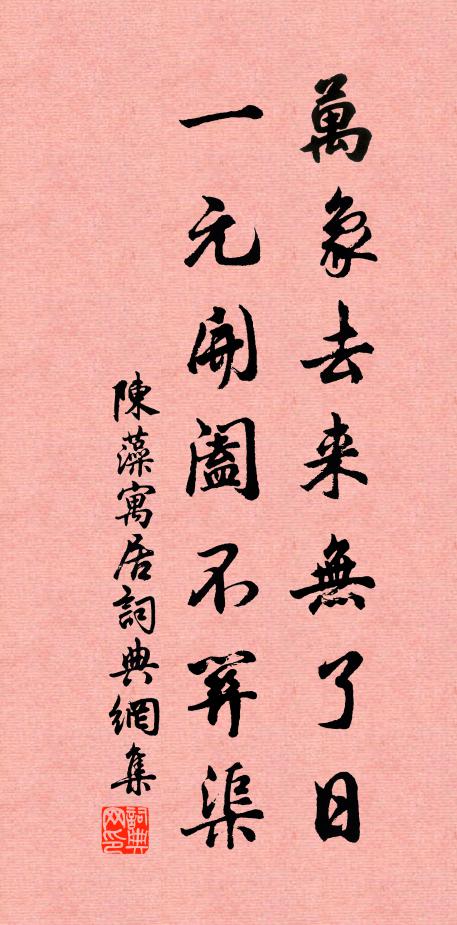 萬象去来無了日
一元開闔不算渠
陳藻寓居詞典網集
詞典网印